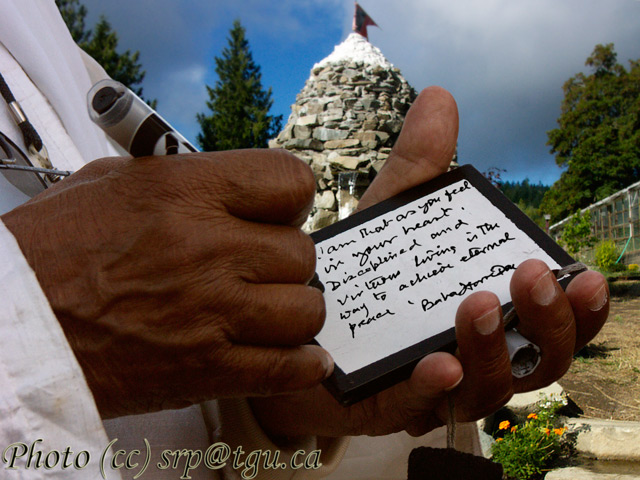 i am that as you feel
in your heart.
Disciplined and
virtuous living is the
way to achieve eternal
peace. Baba Hari Dass
Photo (cc) srp@tgu.ca